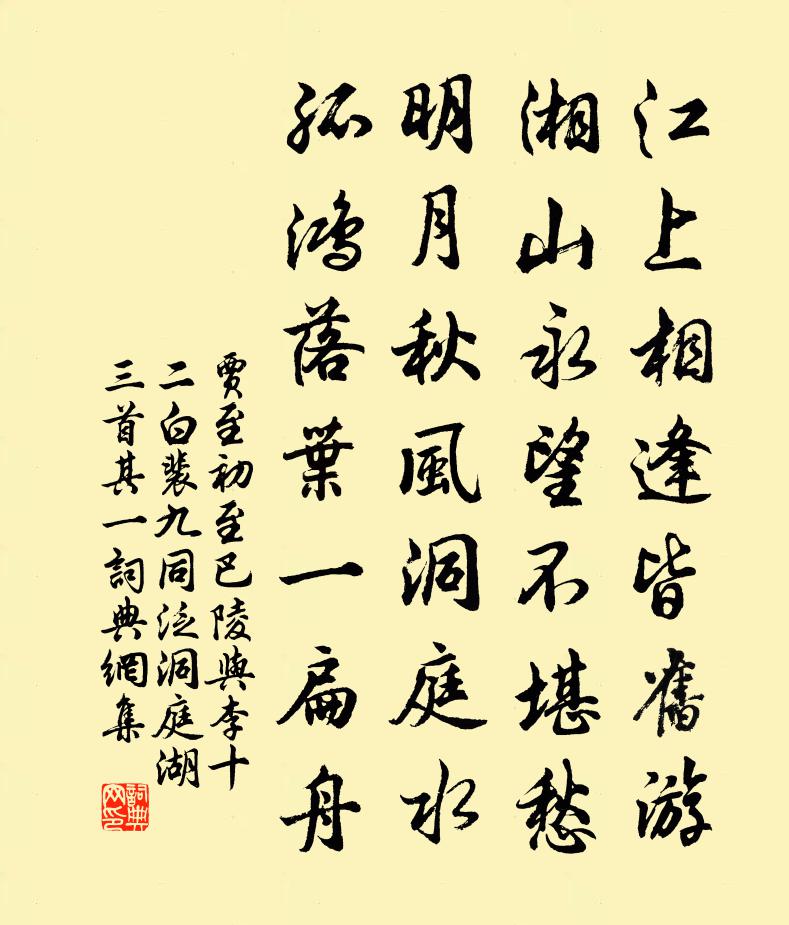 江上相逢皆舊游
湘山永望不堪愁
明月秋風洞庭水
孤鴻落葉一扁舟
賈至初至巴陵與李十
二白裴九同泛洞庭湖
三首其一詞典網集
詞典
网印